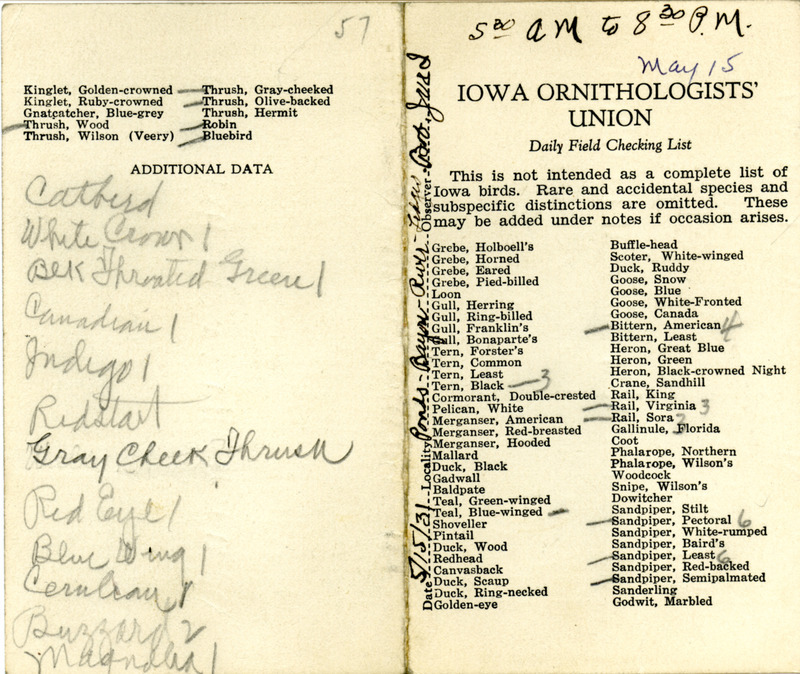 57
Kinglet, Golden-crowned
Kinglet, Ruby-crowned
Gnatcatcher, Blue-grey
Thrush, Wood
Thrush, Wilson (Veery)
Thrush, Gray-cheeked
Thrush, Olive-backed
Thrush, Hermit
Robin
Bluebird
ADDITIONAL DATA
Catbird
White Crown 1
Blk Throated Green 1
Canadian 1
Indigo 1
Redstart
Gray Cheek Thrush
Red Eye 1
Blue Wing 1
Cerulean 1
Buzzard 2
Magnolia 1
5 30 AM to 8 30 P.M.
May 15
IOWA ORNITHOLOGISTS'
UNION
Daily Field Checking List
This is not intended as a complete list of
Iowa birds. Rare and accidental species and
subspecific distinctions are omitted. These
may be added under notes if occasion arises.
Date 5/15/31 Locality Ponds - Bayou - River - Observer
Grebe, Holboell's
Grebe, Horned
Grebe, Eared
Grebe, Pied-billed
Loon
Gull, Herring
Gull, Ring-billed
Gull, Franklin's
Gull, Bonaparte's
Tern, Forster's
Tern, Common
Tern, Least
Tern, Black 3
Cormorant, Double-crested
Pelican, White
Merganser, American
Merganser, Red-breasted
Merganser, Hooded
Mallard
Duck, Black
Gadwall
Baldpate
Teal, Green-winged
Teal, Blue-winged
Shoveller
Pintail
Duck, Wood
Redhead
Canvasback
Duck, Scaup
Duck, Ring-necked
Golden-eye
Buffle-head
Scoter, White-winged
Duck, Ruddy
Goose, Snow
Goose, Blue
Goose, White-Fronted
Goose, Canada
Bittern, American 4
Bittern, Least
Heron, Great Blue
Heron, Green
Heron, Black-crowned Night
Crane, Sandhill
Rail, King
Rail, Virginia 3
Rail, Sora 3
Gallinule, Florida
Coot
Phalarope, Northern
Phalarope, Wilson's
Woodcock
Snipe, Wilson's
Dowitcher
Sandpiper, Stilt
Sandpiper, Pectoral 6
Sandpiper, White-rumped
Sandpiper, Baird's
Sandpiper, Least 6
Sandpiper, Red-backed
Sandpiper, Semipalmated
Sanderling
Godwit, Marbled